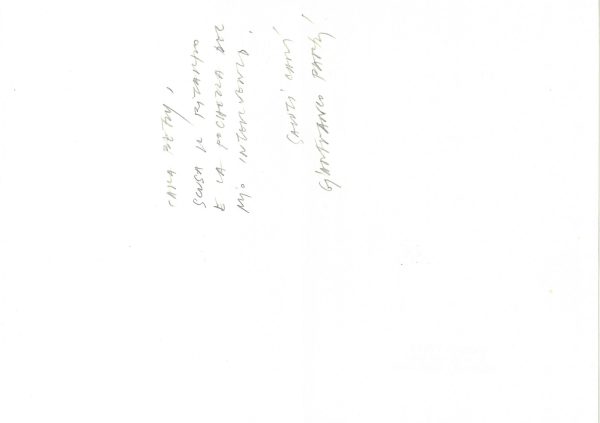 CARA BETTY,
SCUSA IL RITARDO
E LA POCHEZZA DEL
MIO INTERVENTO.
SALUTI CARI
GIANFRANCO PARDI!